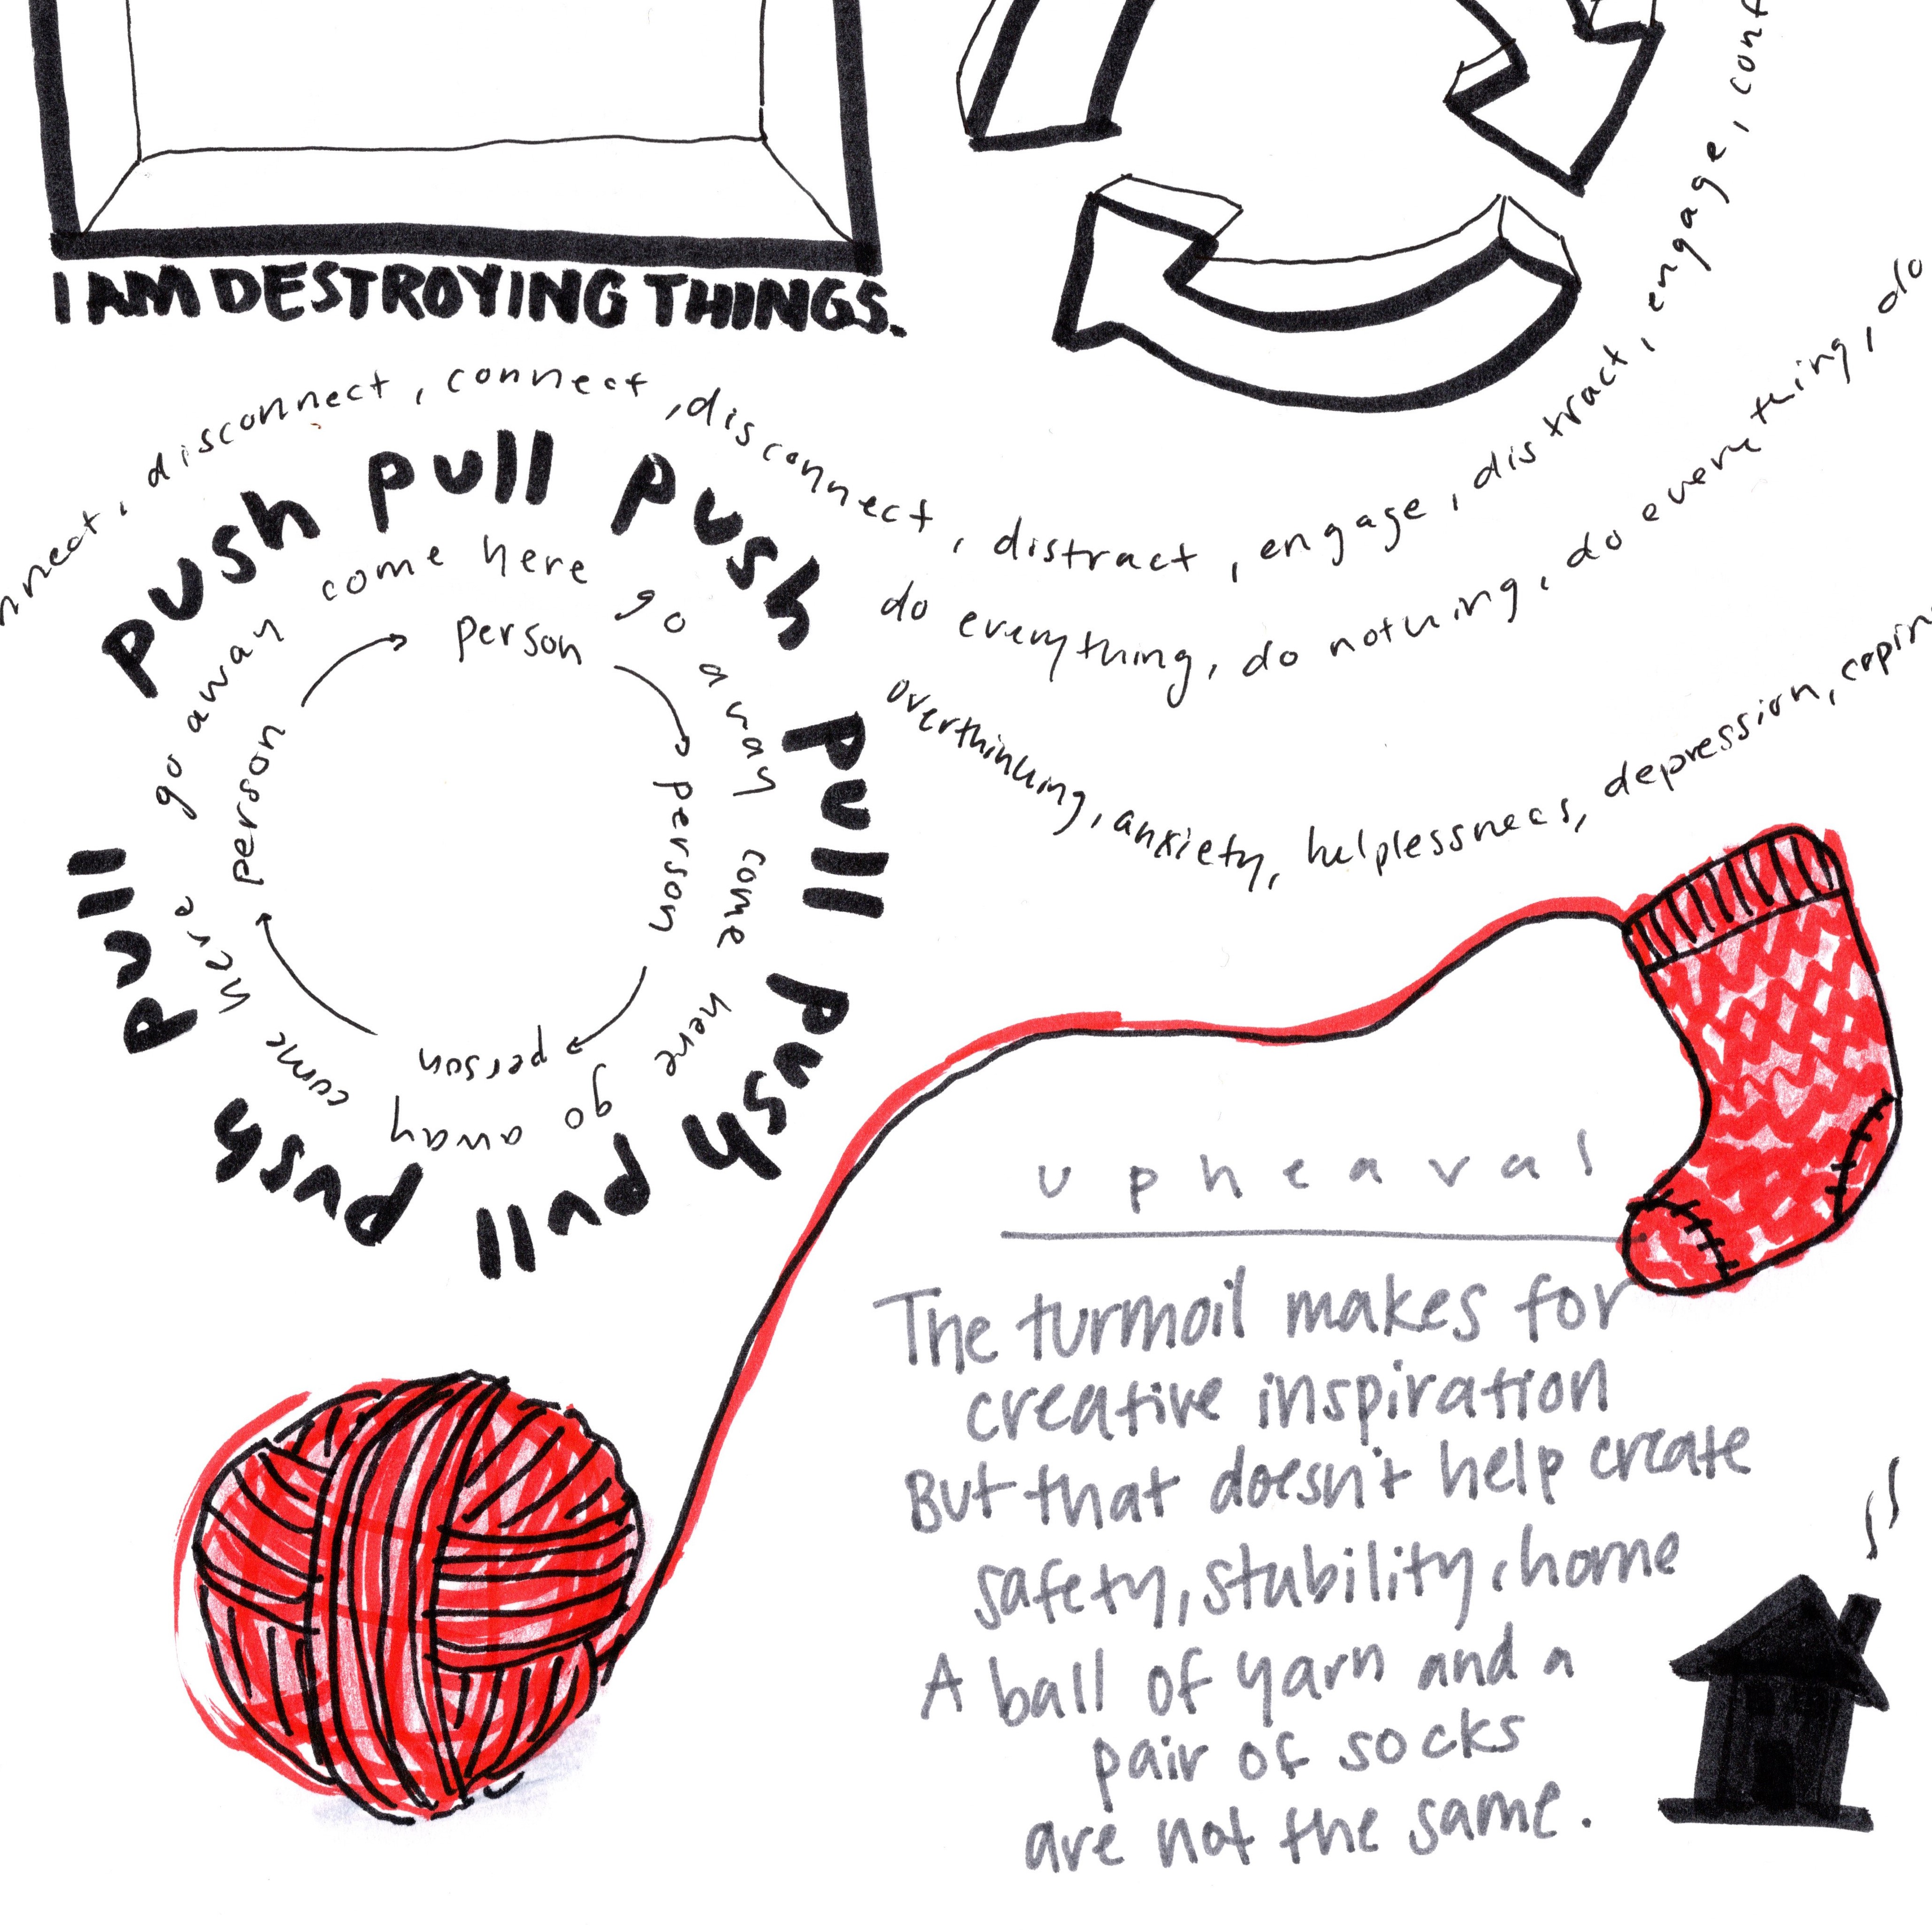 I AM DESTROYING THINGS.
disconnect, connect, disconnect, distract, engage, distract, engage,
do everything, do nothing, do everything, do
overthinking, anxiety, helplessness, depression,
push pull push pull push pull push pull
come here go away come here go away come here go away
person person person person
upheaval
The turmoil makes for
creative inspiration
But that doesn't help create
safety, stability, home
A ball of yarn and a
pair of socks
are not the same.